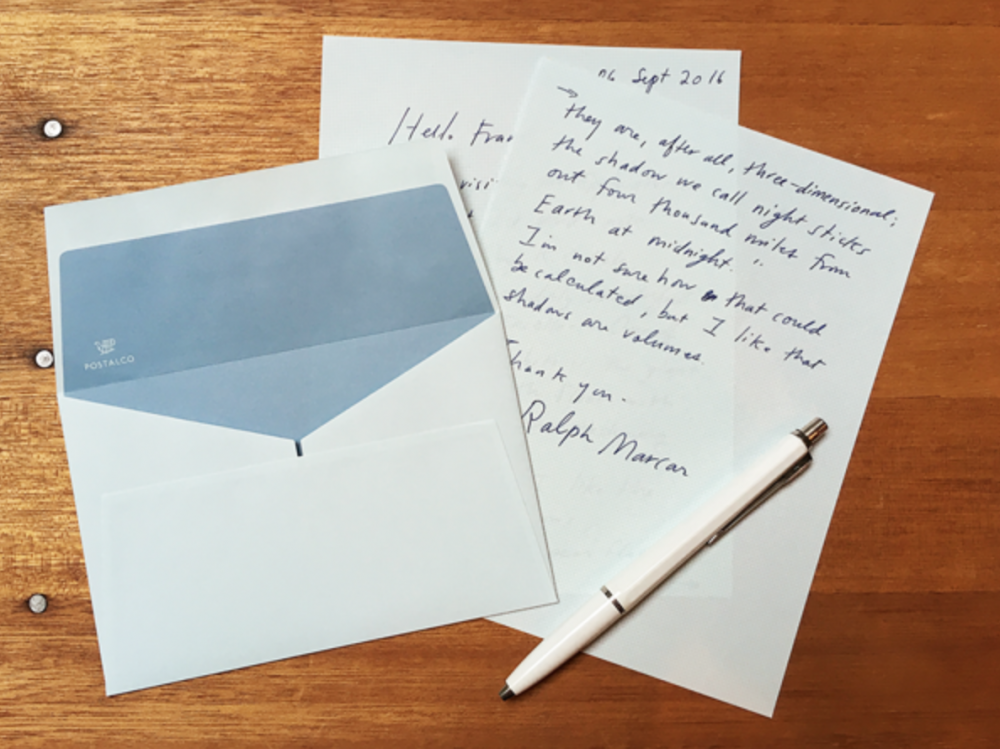 06 Sept 2016
Hello Fran
visi
→ they are, after all, three-dimensional;
the shadow we call night sticks
out four thousand miles from
Earth at midnight.
I'm not sure how that could
be calculated, but I like that
shadows are volumes.
Thank you.
Ralph Marcar
POSTALCO